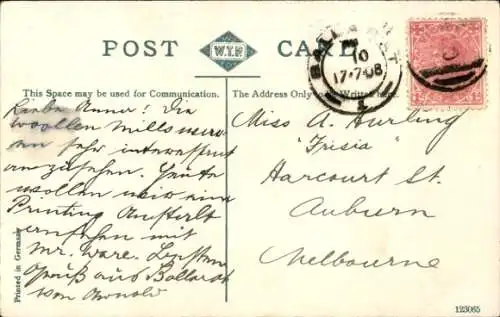 POST CARD
W.T.P.
BALLARAT
10
17·7·08
1
This Space may be used for Communication.
The Address Only to be Written here.
Liebe Anna! Die
woollen Mills waren
sehr interessant
anzusehen. Heute
wollen wir eine
Printing Anstalt
ansehen mit
Mr. Ware. Besten
Gruß aus Ballarat
von Arnold
Miss A. Hurling
"Frisia"
Harcourt St.
Auburn
Melbourne
Printed in Germany
123065